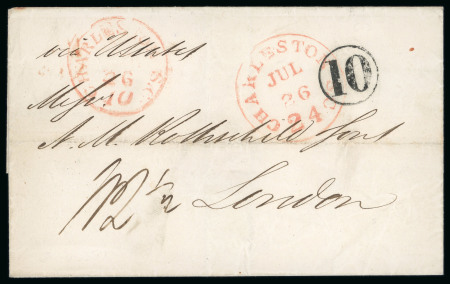 via U States
CHARLESTON
JUL
26
24
10
26
10
Messrs
N. M. Rothschild & Sons
London